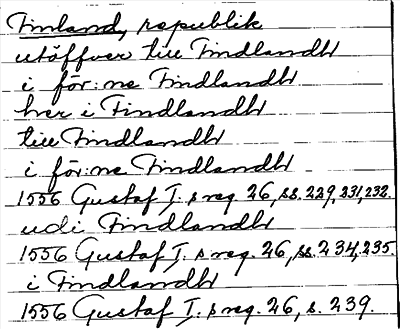 Finland, republik
utöffver till Findlandh
i för:ne Findlandh
her i Findlandh
till Findlandh
i för:ne Findlandh
1556 Gustaf I:s reg. 26, ss. 229, 231, 232.
udi Findlandh
1556 Gustaf I:s reg. 26, ss. 234, 235.
i Findlandh
1556 Gustaf I:s reg. 26, s. 239.